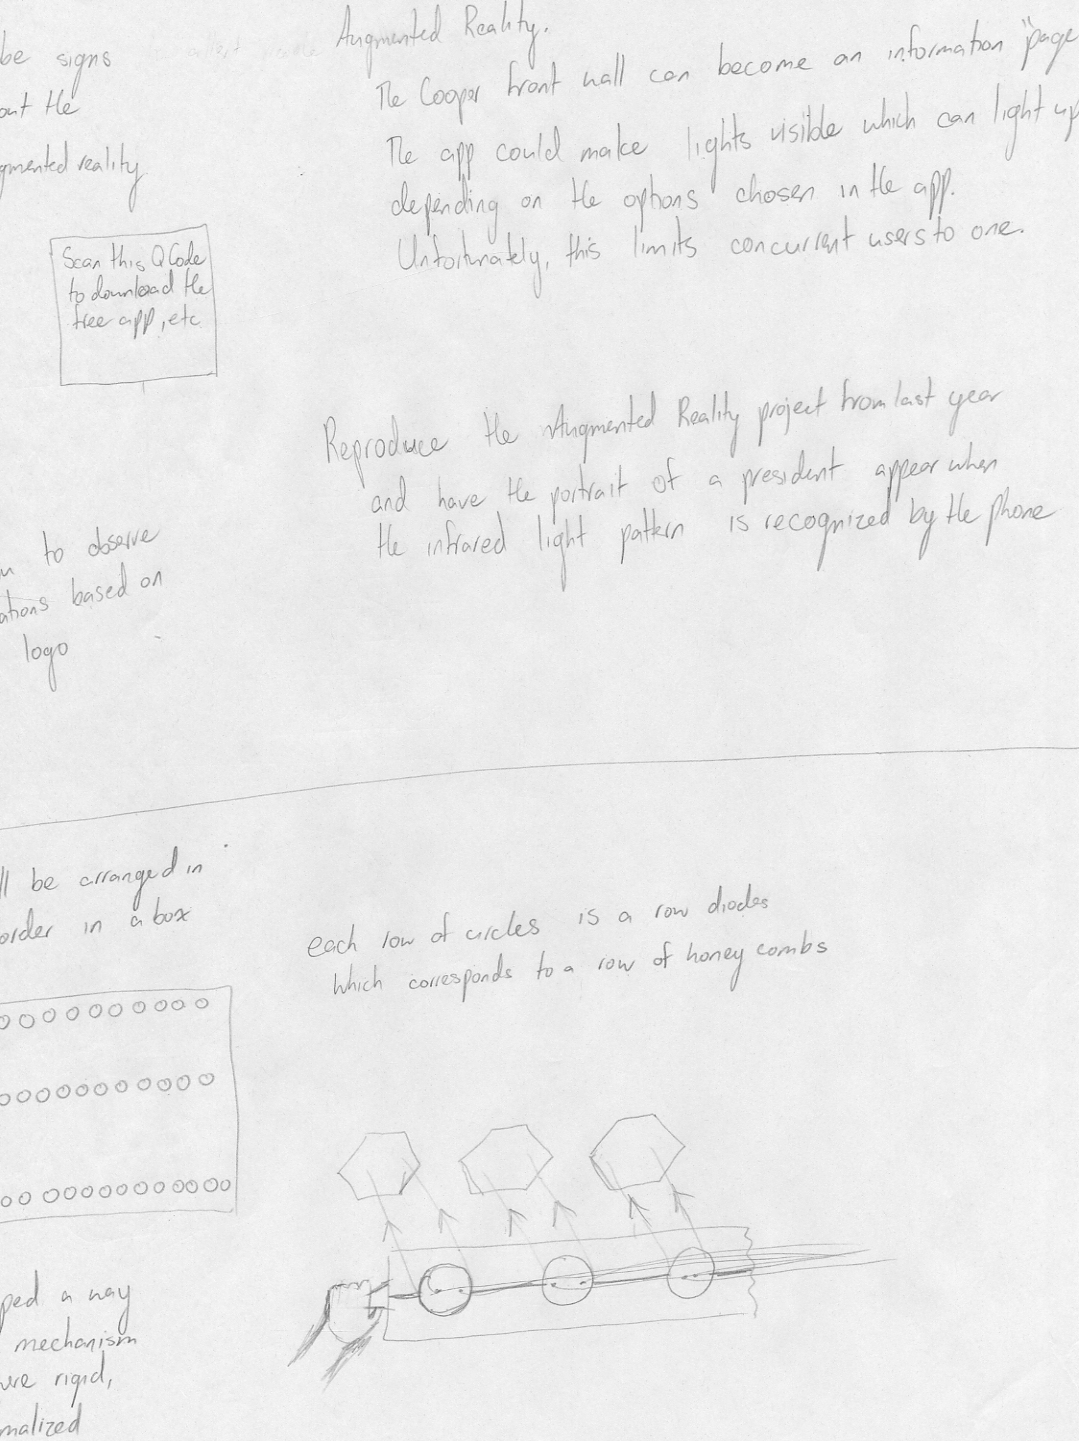 be signs
out the
gmented reality
Scan this QCode
to download the
free app, etc
Augmented Reality.
The Cooper front wall can become an information "page
The app could make lights visible which can light up
depending on the options chosen in the app.
Unfortunately, this limits concurrent users to one.
Reproduce the Augmented Reality project from last year
and have the portrait of a president appear when
the infrared light pattern is recognized by the phone
to observe
ations based on
logo
ll be arranged in
order in a box
each row of circles is a row diodes
which corresponds to a row of honey combs
ped a way
mechanism
rigid,
malized